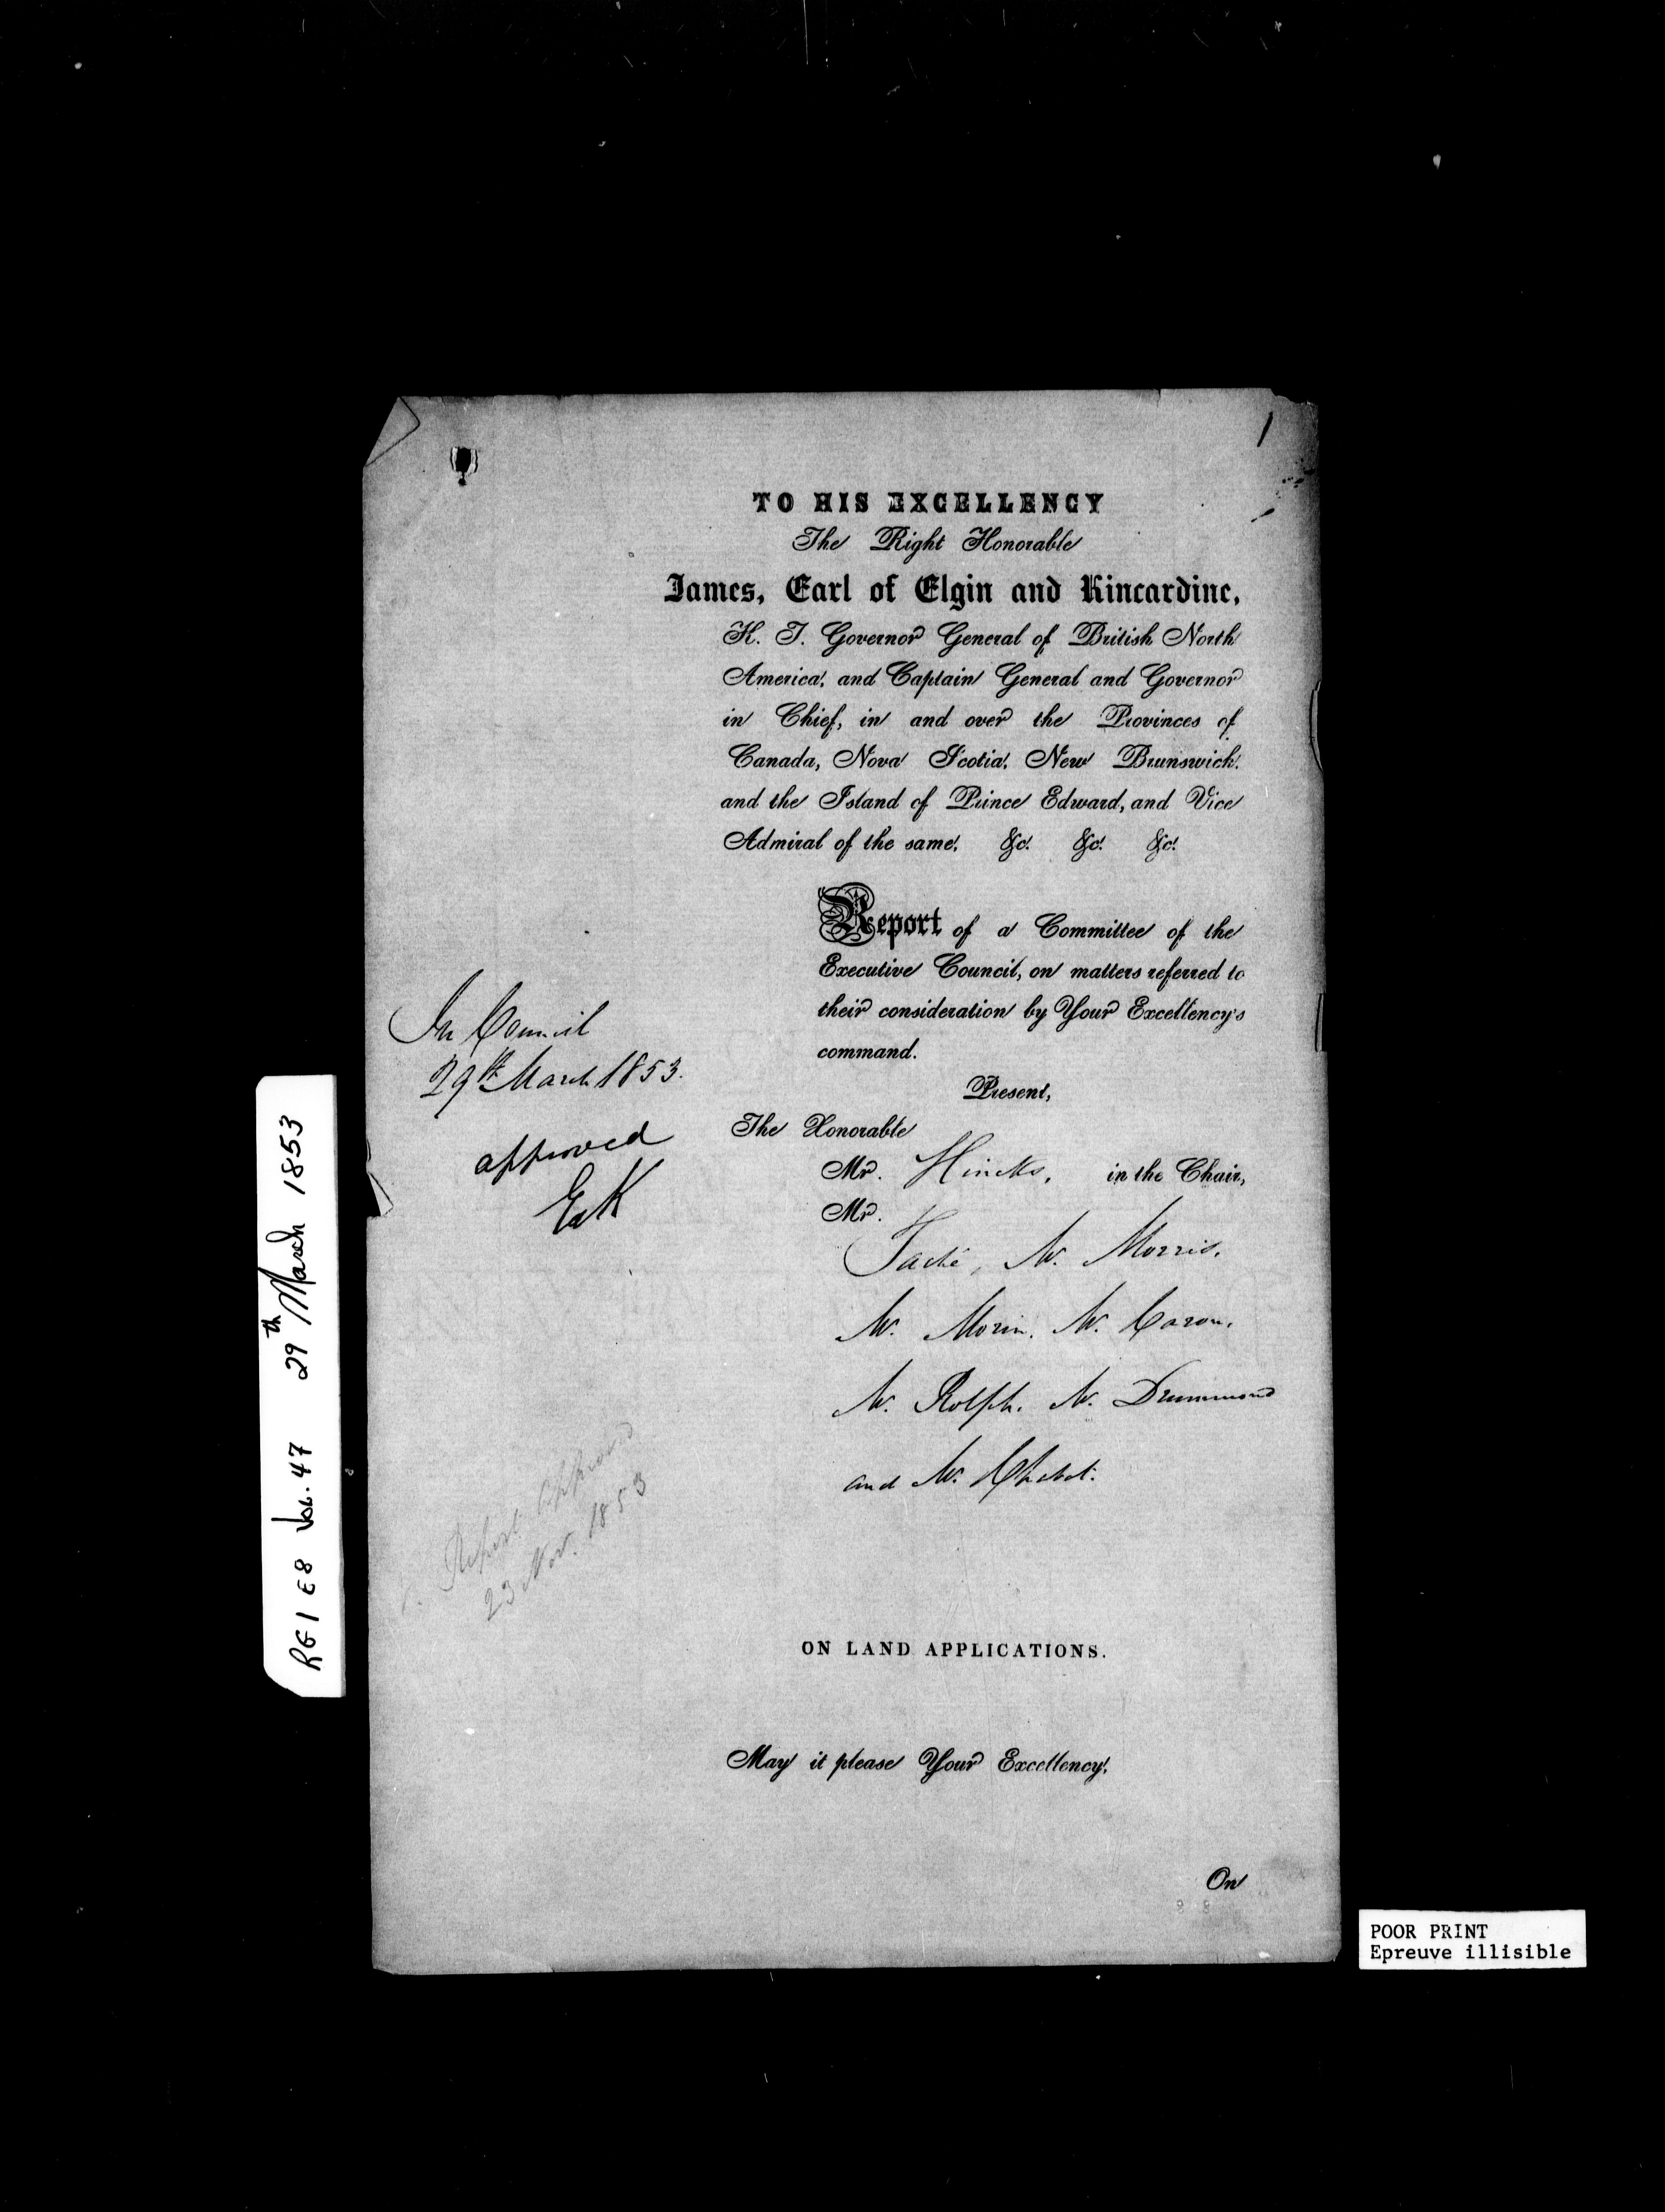 1
TO HIS EXCELLENCY
The Right Honorable
James, Earl of Elgin and Kincardine,
K. T. Governor General of British North
America, and Captain General and Governor
in Chief, in and over the Provinces of
Canada, Nova Scotia, New Brunswick,
and the Island of Prince Edward, and Vice
Admiral of the same, &c. &c. &c.
Report of a Committee of the
Executive Council, on matters referred to
their consideration by Your Excellency's
command.
In Council
29th March 1853.
approved
E&K
Present,
The Honorable
Mr. Hincks, in the Chair,
Mr.
Taché, Mr. Morris,
Mr. Morin, Mr. Caron,
Mr. Rolph, Mr. Drummond
and Mr. Chabot.
Report approved
23 Nov. 1853
ON LAND APPLICATIONS.
May it please Your Excellency,
On
RG1 E8 Vol. 47 29th March 1853
POOR PRINT
Epreuve illisible